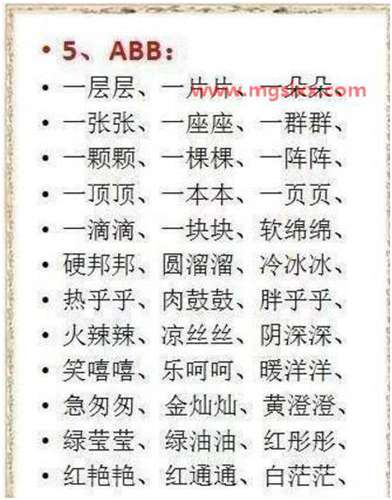 • 5、ABB：
• 一层层、一片片、一朵朵、
www.mgsxs.com
• 一张张、一座座、一群群、
• 一颗颗、一棵棵、一阵阵、
• 一顶顶、一本本、一页页、
• 一滴滴、一块块、软绵绵、
• 硬邦邦、圆溜溜、冷冰冰、
• 热乎乎、肉鼓鼓、胖乎乎、
• 火辣辣、凉丝丝、阴深深、
• 笑嘻嘻、乐呵呵、暖洋洋、
• 急匆匆、金灿灿、黄澄澄、
• 绿莹莹、绿油油、红彤彤、
• 红艳艳、红通通、白茫茫、